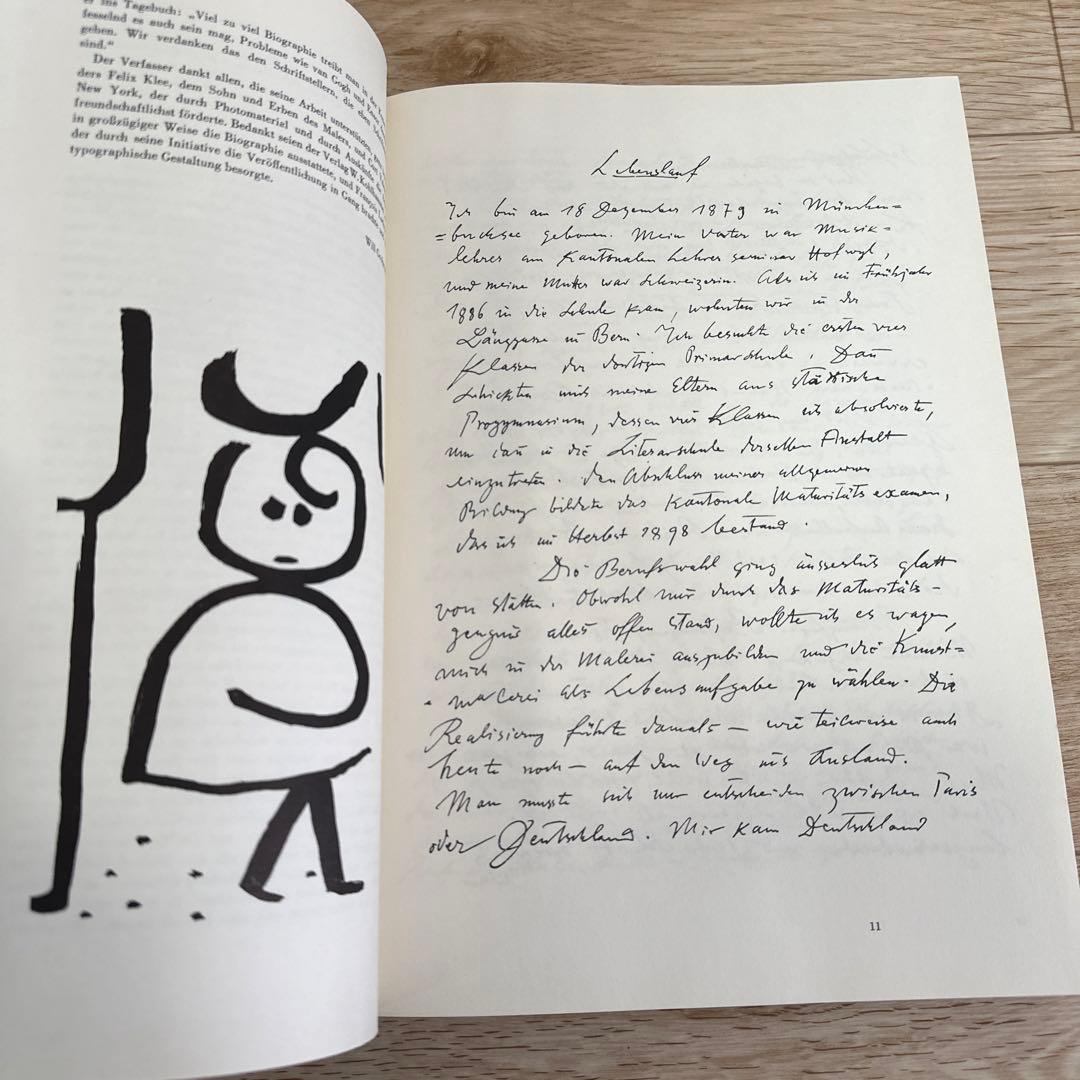 er ins Tagebuch: „Viel zu viel Biographie treibt man in der
fesselnd es auch sein mag, Probleme wie van Gogh und
geben. Wir verdanken das den Schriftstellern, die eben
sind.“
Der Verfasser dankt allen, die seine Arbeit unterstützten,
ders Felix Klee, dem Sohn und Erben des Malers, und
New York, der durch Photomaterial und durch Auskünfte
freundschaftlichst förderte. Bedankt seien der Verlag W. Kohlhammer
in großzügiger Weise die Biographie ausstattete, und
der durch seine Initiative die Veröffentlichung in Gang
typographische Gestaltung besorgte.
Lebenslauf
Ich bin am 18 Dezember 1879 in München=
=buchsee geboren. Mein Vater war Musik=
lehrer am Kantonalen Lehrerseminar Hofwyl,
und meine Mutter war Schweizerin. Als ich im Frühjahr
1886 in die Schule kam, wohnten wir in der
Länggasse in Bern. Ich besuchte die ersten vier
Klassen der dortigen Primarschule, Dan
schickten mich meine Eltern ans städtische
Progymnasium, dessen vier Klassen ich absolvierte,
um dan in die Literarschule derselben Anstalt
einzutreten. Den Abschluss meiner allgemeinen
Bildung bildete das Kantonale Maturitätsexamen,
das ich im Herbst 1898 bestand.
Die Berufswahl ging äusserlich glatt
von statten. Obwohl mir durch das Maturitäts-
zeugnis alles offen stand, wollte ich es wagen,
mich in der Malerei auszubilden und die Kunst=
-malerei als Lebensaufgabe zu wählen. Die
Realisierung führte damals — wie teilweise auch
heute noch — auf den Weg ins Ausland.
Man musste sich nur entscheiden zwischen Paris
oder Deutschland. Mir kam Deutschland
11